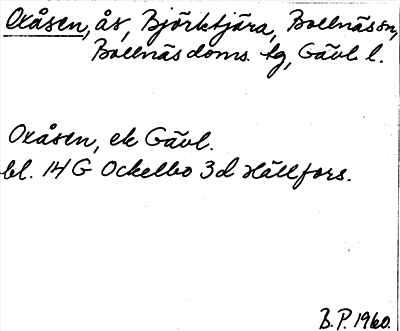 Oxåsen, ås, Björktjära, Bollnäs sn,
Bollnäs doms. tg, Gävl l.
Oxåsen, ek Gävl.
bl. 14 G Ockelbo 3d Hällfors.
B.P. 1960.